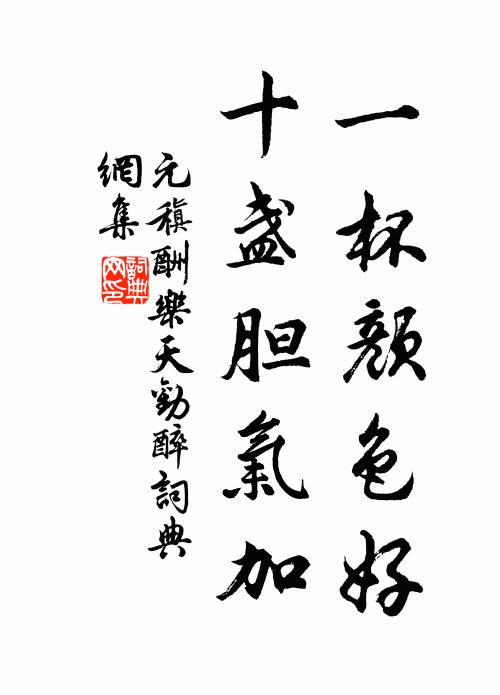 一杯顏色好
十盞胆氣加
元稹酬樂天勸醉詞典
網集
詞典網印